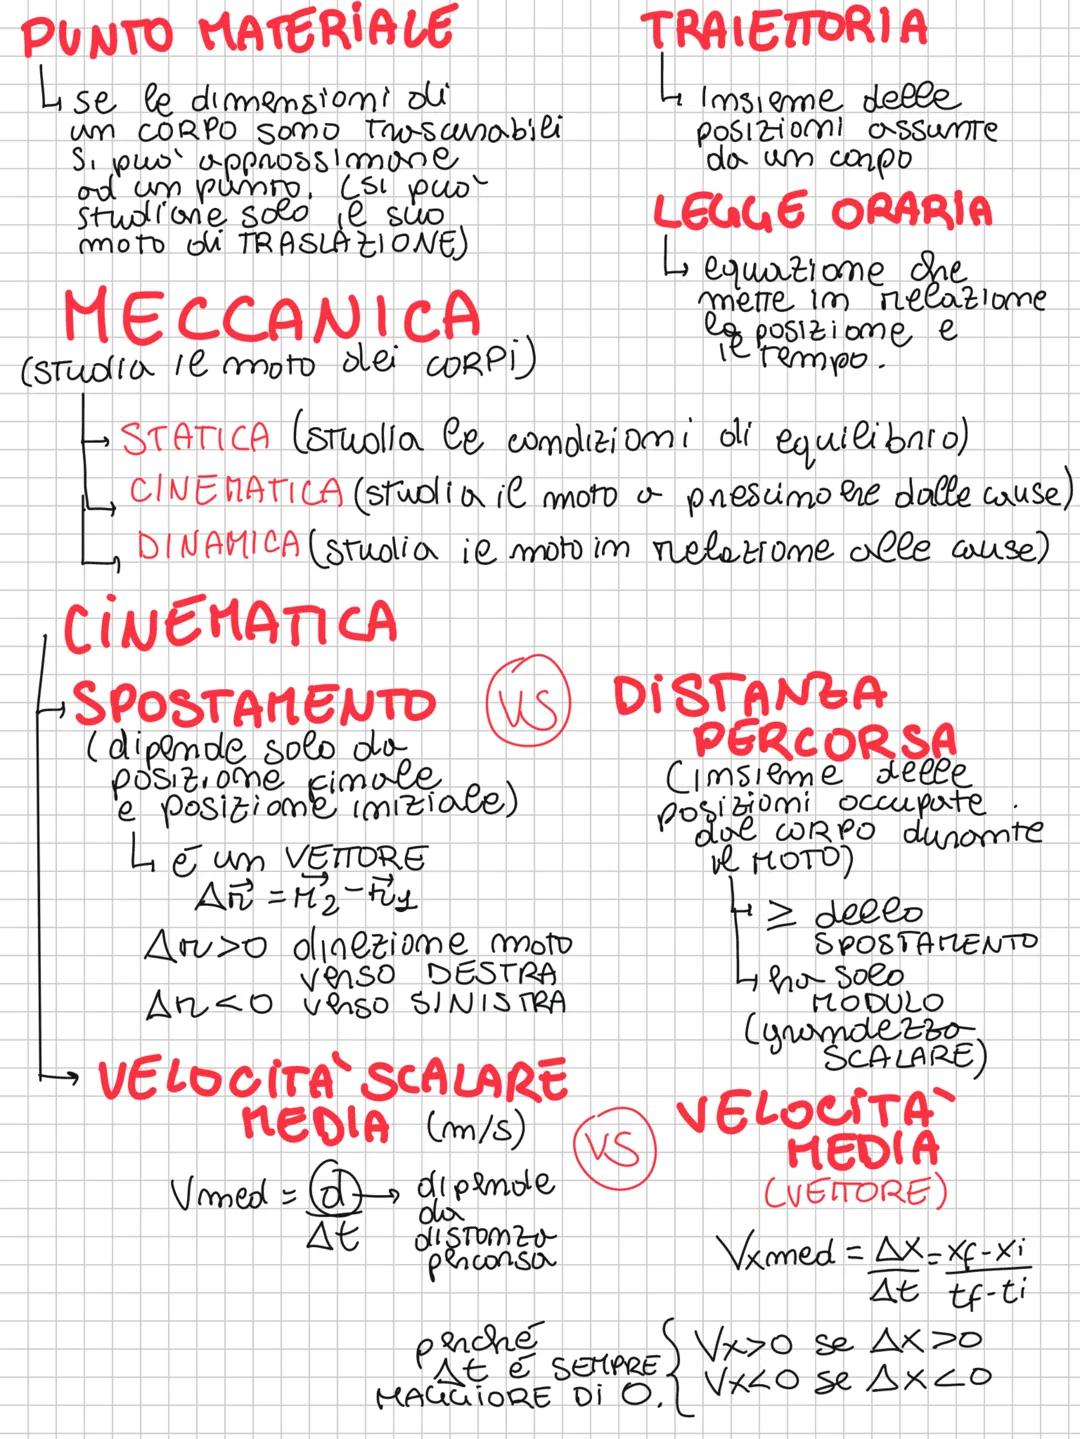 PUNTO MATERIALE
↳ se le dimensioni di
un CORPO sono trascurabili
si può approssimare
ad un punto. (si può
studiare solo il suo
moto di TRASLAZIONE)
TRAIETTORIA
↳ Insieme delle
posizioni assunte
da un corpo
LEGGE ORARIA
↳ equazione che
mette in relazione
la posizione e
il tempo.
MECCANICA
(studia il moto dei CORPI)
→ STATICA (studia le condizioni di equilibrio)
→ CINEMATICA (studia il moto a prescindere dalle cause)
→ DINAMICA (studia il moto in relazione alle cause)
CINEMATICA
→ SPOSTAMENTO
(dipende solo da
posizione finale
e posizione iniziale)
↳ é un VETTORE
Δr⃗ = r⃗2 - r⃗1
Δr>0 direzione moto
verso DESTRA
Δr<0 verso SINISTRA
VS
DISTANZA
PERCORSA
(insieme delle
posizioni occupate
dal CORPO durante
il MOTO)
↳ ≥ dello
SPOSTAMENTO
↳ ha solo
MODULO
(grandezza
SCALARE)
→ VELOCITA' SCALARE
MEDIA (m/s)
Vmed = d/Δt → dipende
da
distanza
percorsa
VS
VELOCITA'
MEDIA
(VETTORE)
Vxmed = Δx/Δt = xf-xi/tf-ti
perché
Δt é SEMPRE
MAGGIORE DI 0.
{ Vx>0 se Δx>0
Vx<0 se Δx<0